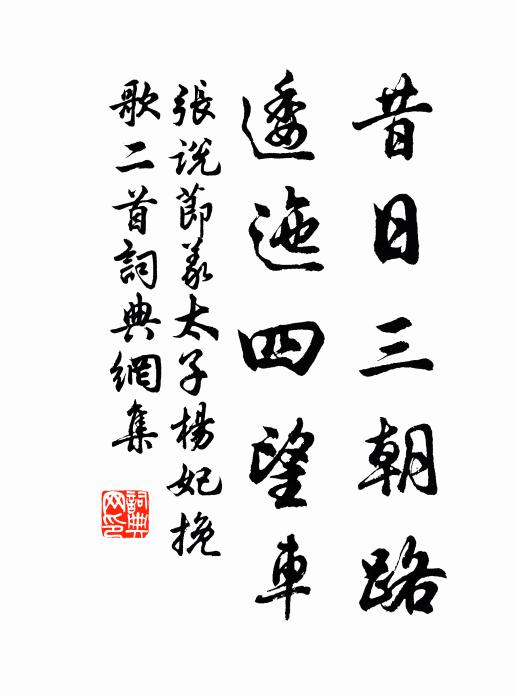 昔日三朝路
逶迤四望車
張說節義太子楊妃挽
歌二首詞典網集
詞典网印